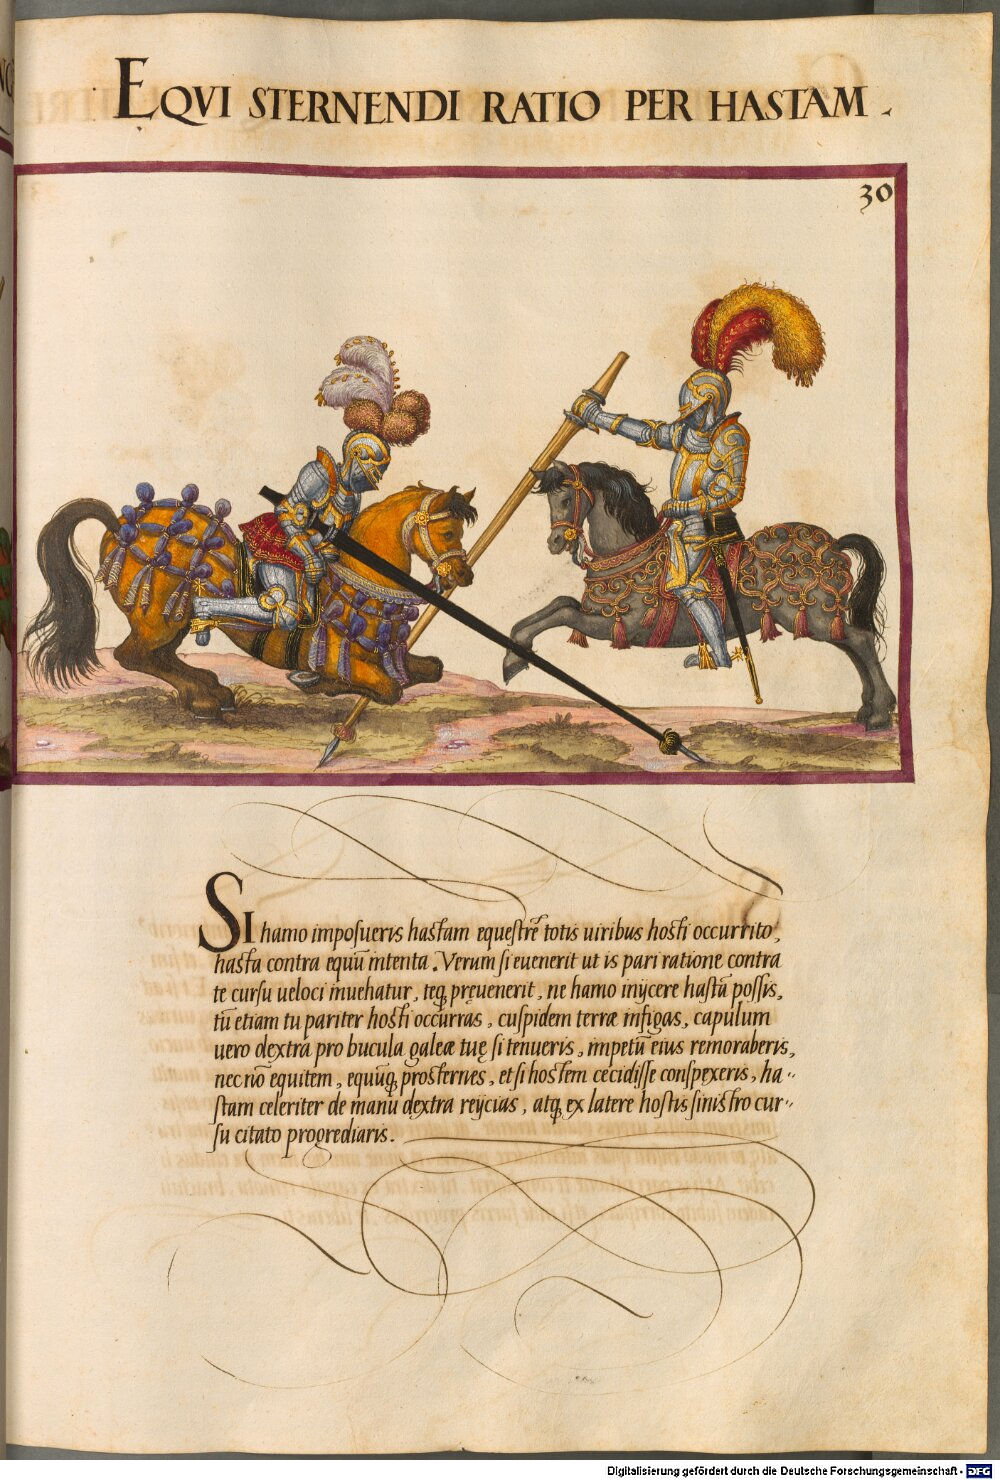 EQVI STERNENDI RATIO PER HASTAM.
30
SI hamo imposueris hastam equestrē totis uiribus hosti occurrito,
hasta contra equū intenta. Verum si euenerit ut is pari ratione contra
te cursu ueloci inuehatur, teq; pręuenerit, ne hamo inijcere hastā possis,
tū etiam tu pariter hosti occurras, cuspidem terræ infigas, capulum
uero dextra pro bucula galeæ tuę si tenueris, impetū eius remoraberis,
nec nō equitem, equūq; prosternes, et si hostem cecidisse conspexeris, ha-
stam celeriter de manu dextra reijcias, atq; ex latere hostis sinistro cur-
su citato progrediaris.
Digitalisierung gefördert durch die Deutsche Forschungsgemeinschaft - DFG